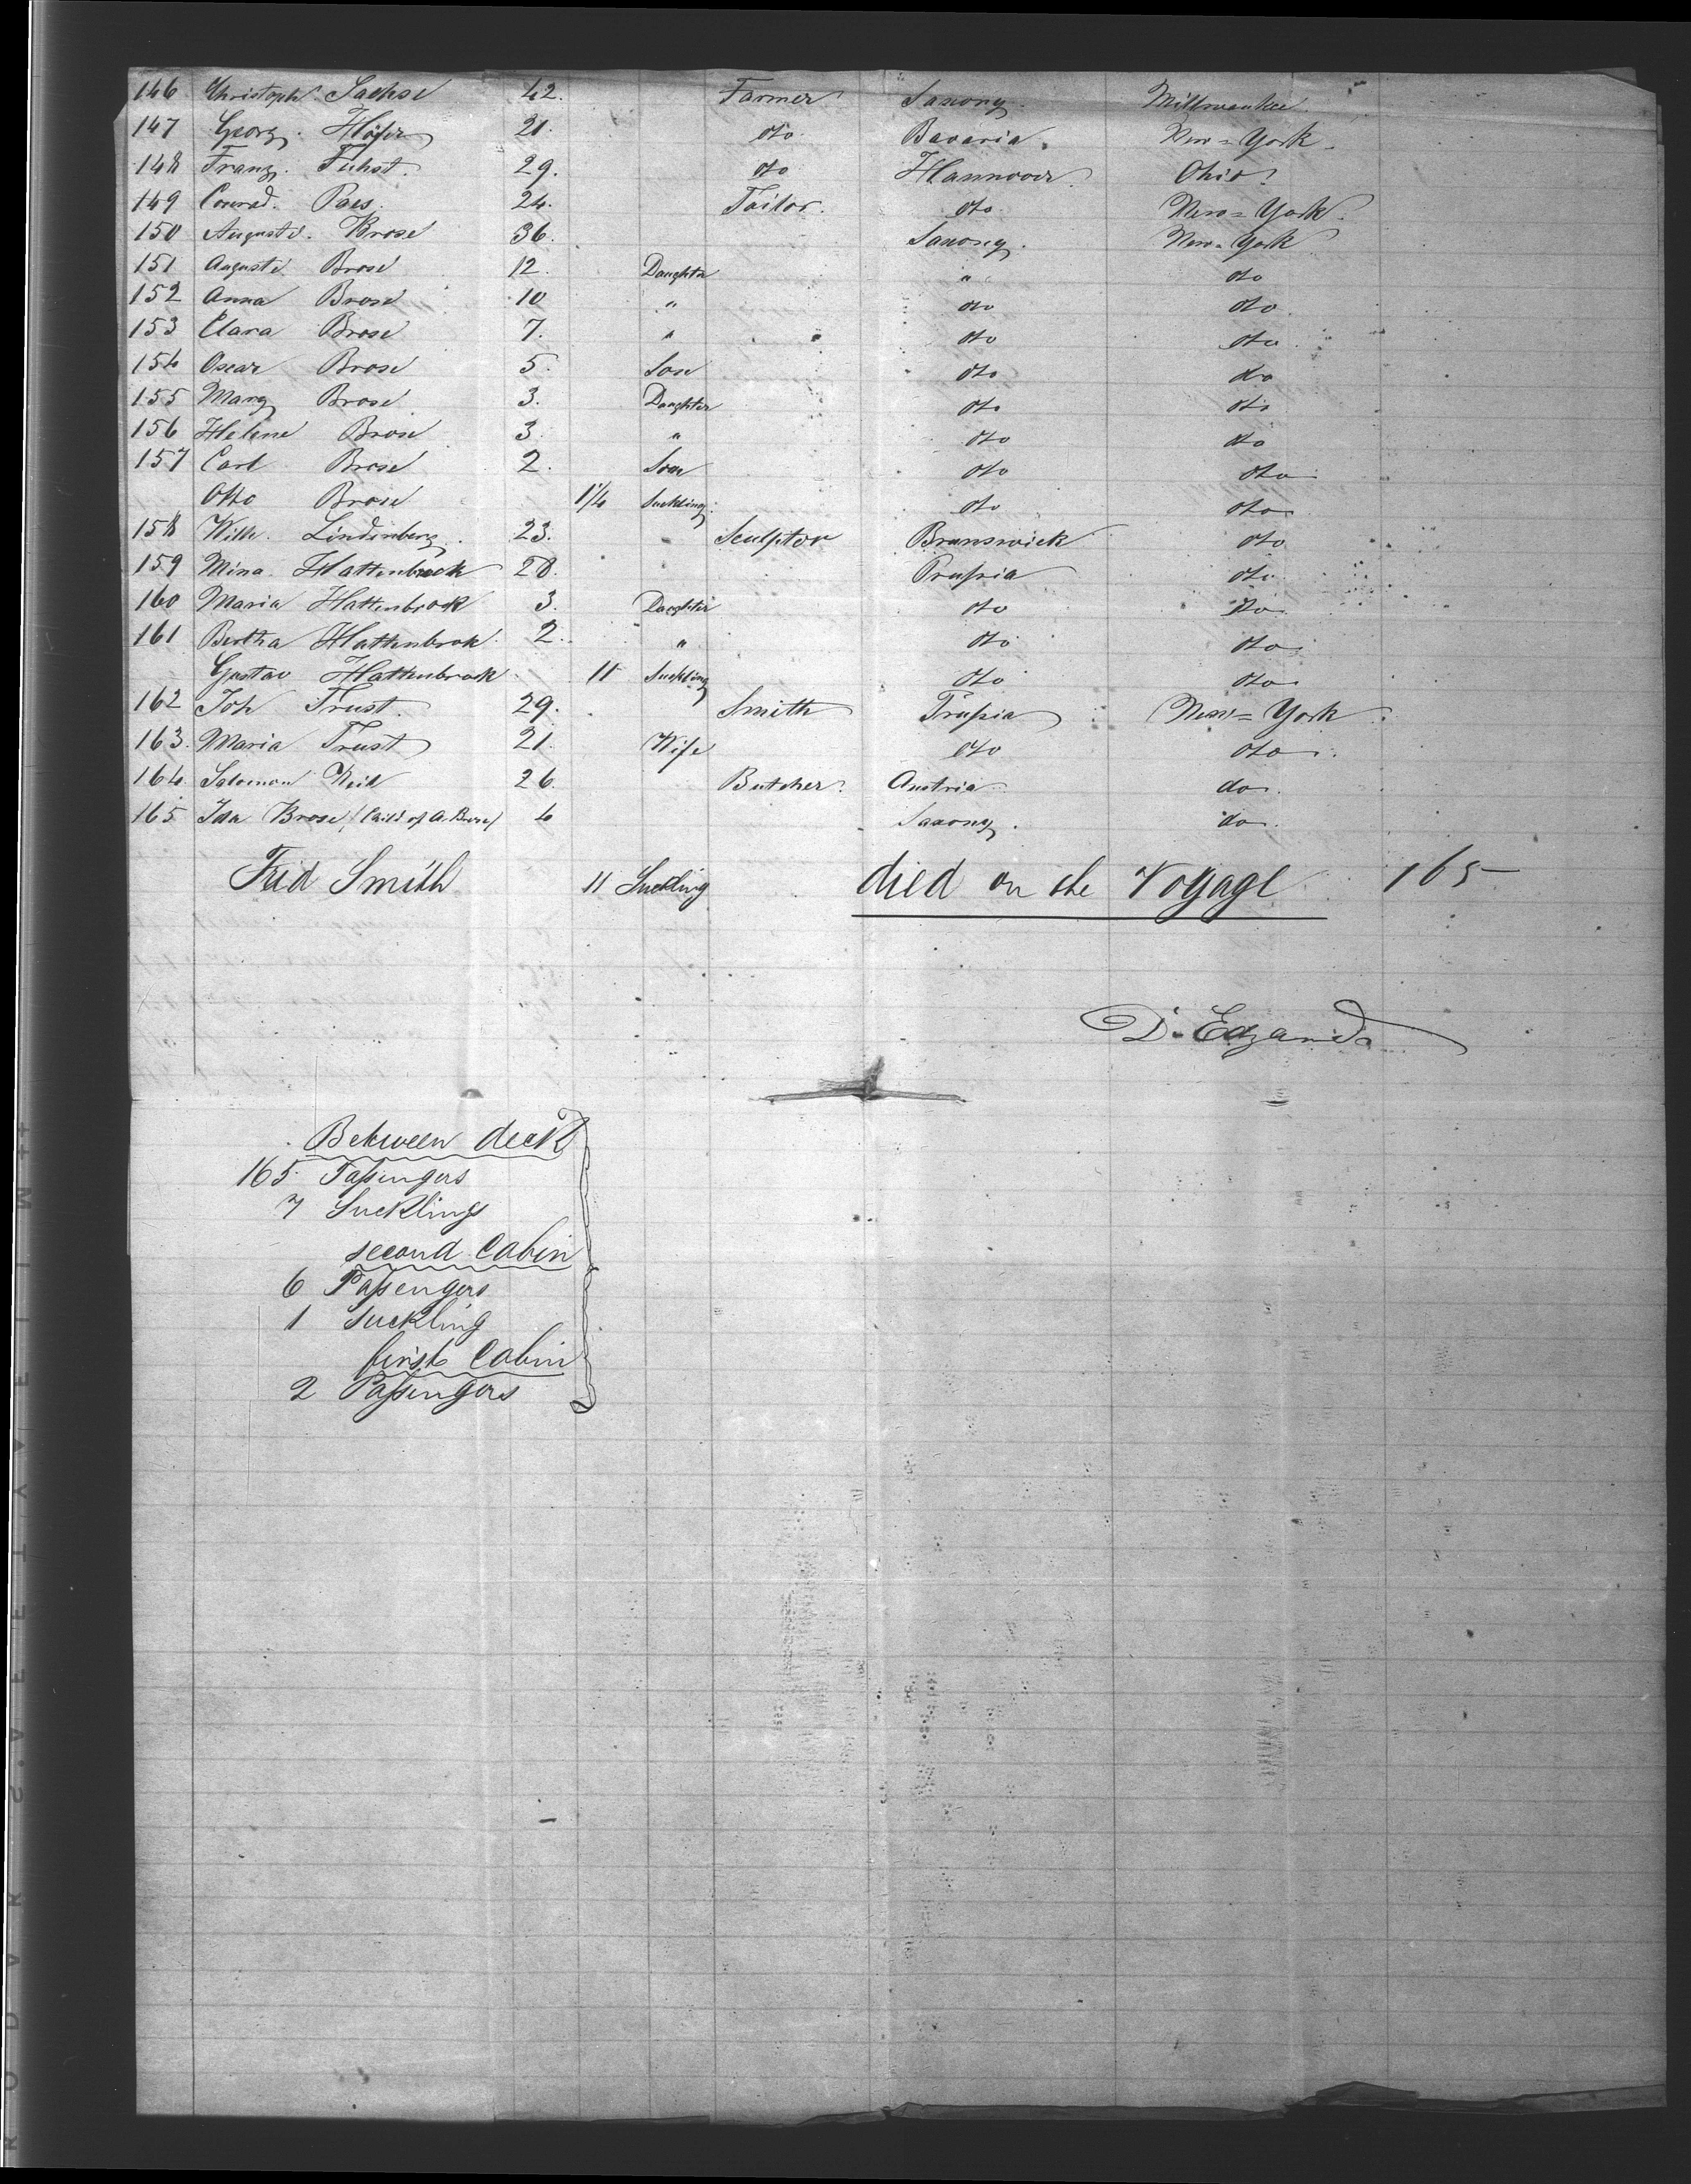 146 Christoph Sachse 42. Farmer Saxony. Millwaukee
147 Georg. Höfer 21. dto. Bavaria. New=York.
148 Franz. Fuhst. 29. dto Hannover. Ohio.
149 Conrad. Paes. 24. Tailor. dto. New=York.
150 Auguste. Brose 36. Saxony. New=York
151 Auguste Brose 12. Daughter " dto
152 Anna Brose 10 " dto dto.
153 Clara Brose 7. " dto dto.
154 Oscar Brose 5. Son dto do
155 Marg Brose 3. Daughter dto dto
156 Helene Brose 3. " dto dto
157 Carl Brose 2. Son dto dto
Otto Brose 1 1/4 Suckling. dto dto
158 Wilh. Lindenberg. 23. Sculptor Brunswick dto
159 Mina Hattenbrock 28. Prussia dto
160 Maria Hattenbrock 3. Daughter dto dto
161 Bertha Hattenbrok 2. " dto dto
Gustav Hattenbrock 11 Suckling dto dto
162 Joh Trust. 29. Smith Prussia New=York.
163. Maria Trust 21. Wife dto dto.
164. Salomon 26. Butcher. Austria do.
165 Ida Brose (Child of A. Brose) 4 Saxony. do.
Frid Smith 11 Suckling died on the Voyage 165
D. Edzards
Between deck
165 Passengers
7 Sucklings
second Cabin
6 Passengers
1 Suckling
first Cabin
2 Passengers